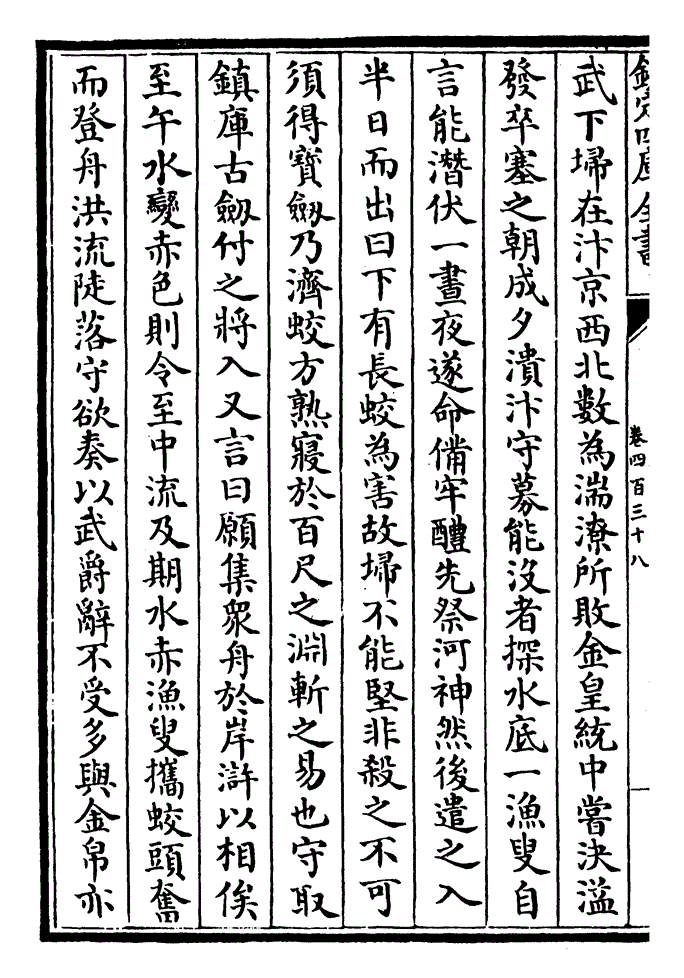 欽定四庫全書
卷四百三十八
武下埽在汴京西北數為湍潦所敗金皇統中嘗決溢
發卒塞之朝成夕潰汴守募能沒者探水底一漁叟自
言能潛伏一晝夜遂命備牢醴先祭河神然後遣之入
半日而出曰下有長蛟為害故埽不能堅非殺之不可
須得寶劔乃濟蛟方熟寢於百尺之淵斬之易也守取
鎮庫古劔付之將入又言曰願集衆舟於岸滸以相俟
至午水變赤色則令至中流及期水赤漁叟攜蛟頭奮
而登舟洪流陡落守欲奏以武爵辭不受多與金帛亦